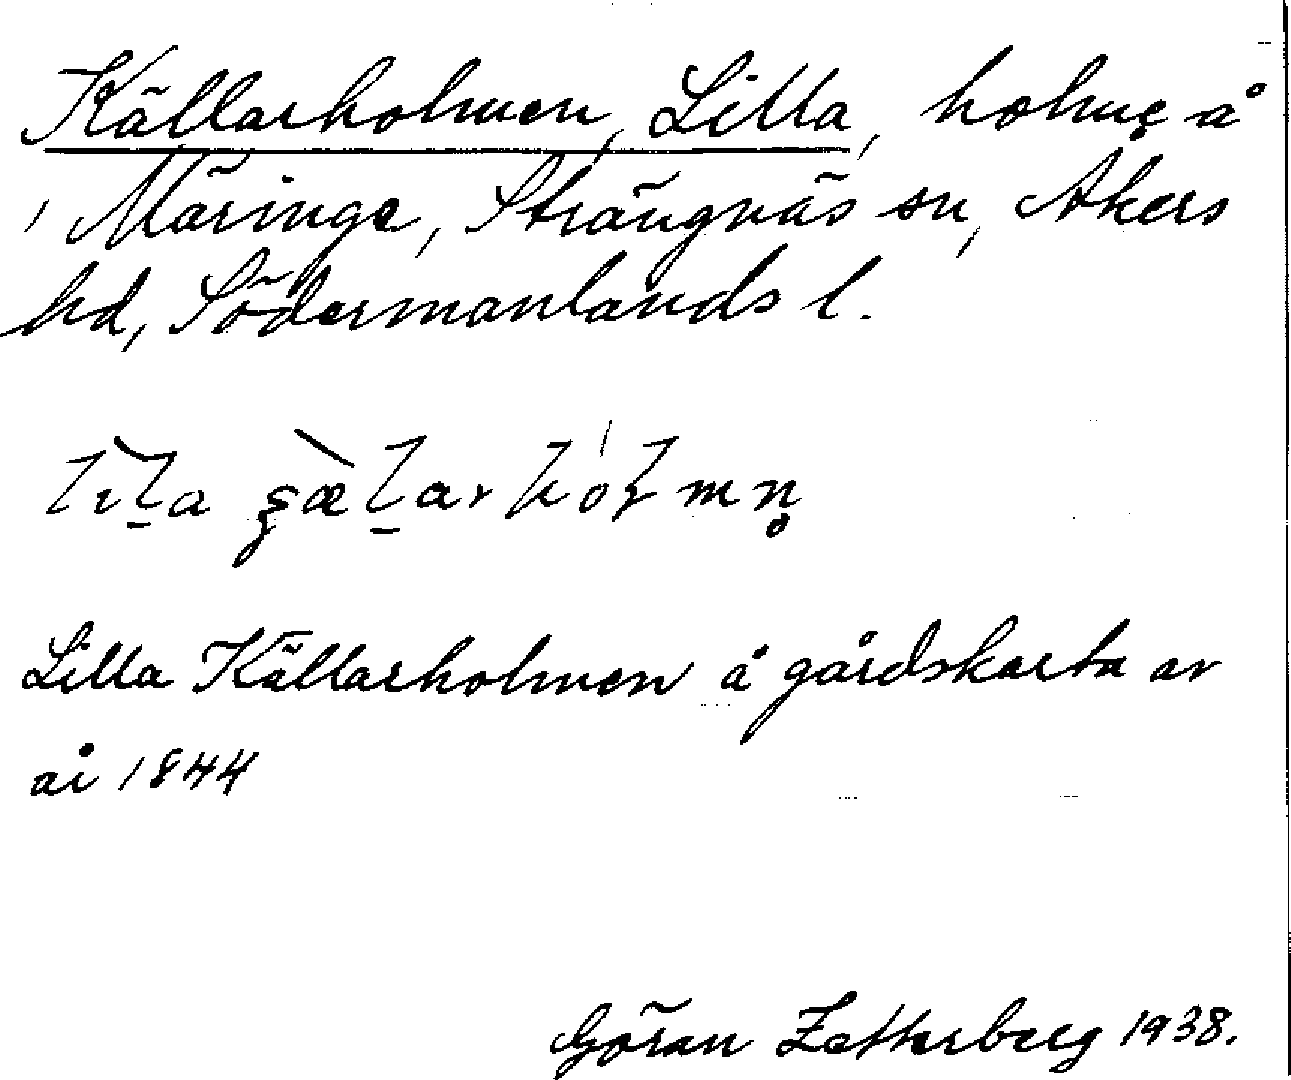 Källarholmen, Lilla, holme å
Märinge, Strängnäs sn, Åkers
hd, Södermanlands l.
Lilla Källarholmen å gårdskarta av
år 1844
Göran Zetterberg 1938.